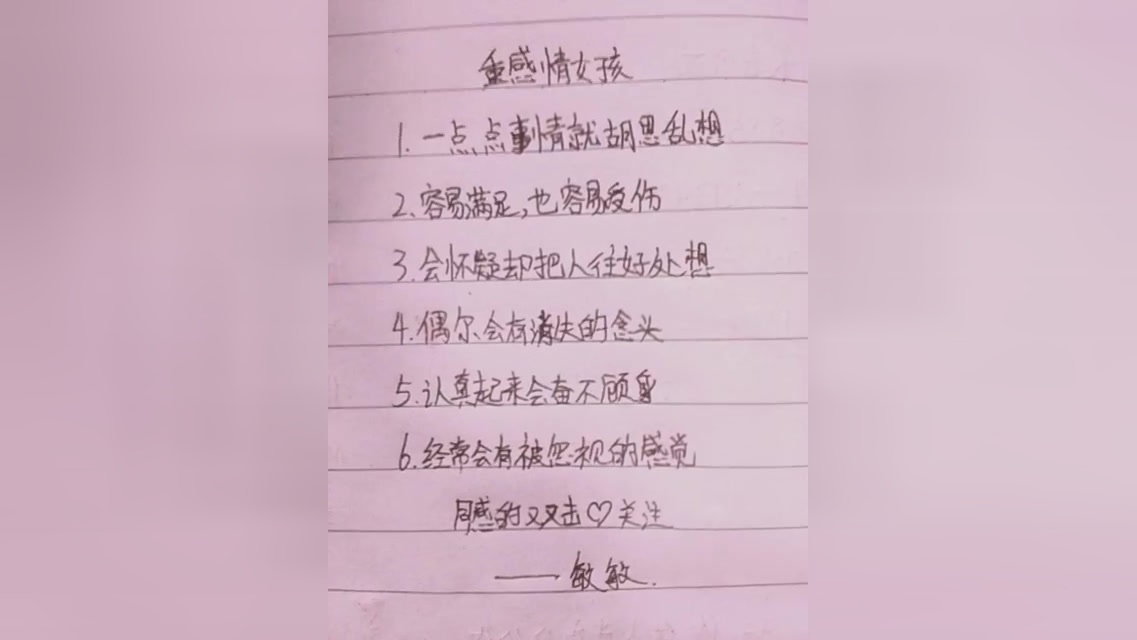 重感情女孩
1. 一点点事情就胡思乱想
2. 容易满足,也容易受伤
3. 会怀疑却把人往好处想
4. 偶尔会有消失的念头
5. 认真起来会奋不顾身
6. 经常会有被忽视的感觉
同感的双击♡关注
—— 敏敏.